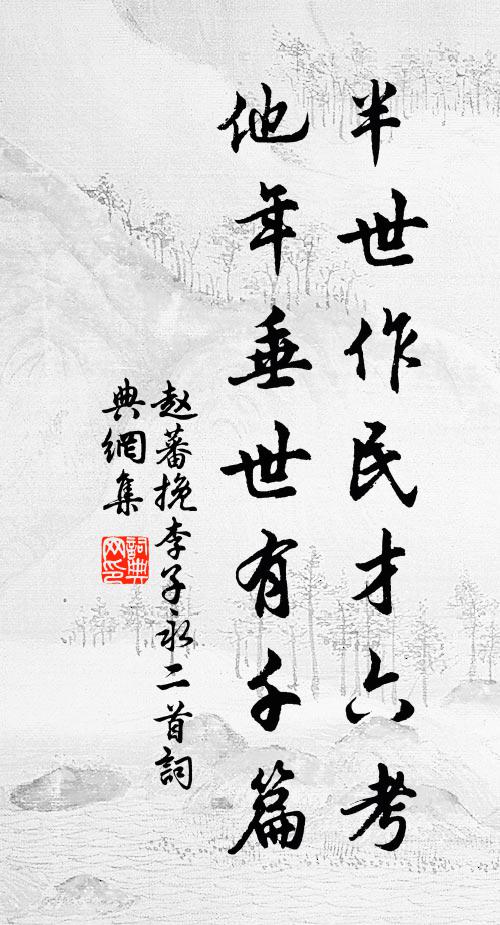 半世作民才六考
他年垂世有千篇
赵蕃挽李子永二首詞
典網集
詞典
网印